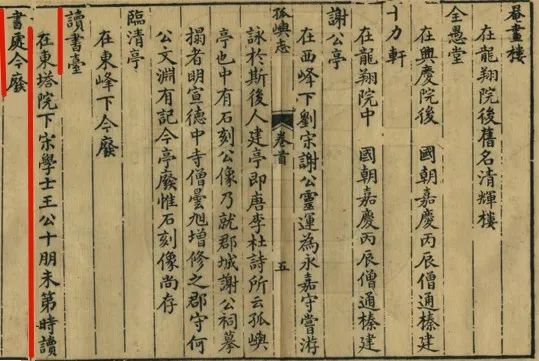 菴畫樓
在龍翔院後舊名清輝樓
全愚堂
在興慶院後 國朝嘉慶丙辰僧通榛建
十力軒
在龍翔院中 國朝嘉慶丙辰僧通榛建
謝公亭
在西峰下劉宋謝公靈運為永嘉守嘗游
孤嶼志 卷首 五
詠於斯後人建亭即唐李杜詩所云孤嶼
亭也中有石刻公像乃就郡城謝公祠摹
搨者明宣德中寺僧曇旭增修之郡守何
公文淵有記今亭廢惟石刻像尚存
臨清亭
在東峰下今廢
讀書臺
在東塔院下宋學士王公十朋未第時讀
書處今廢